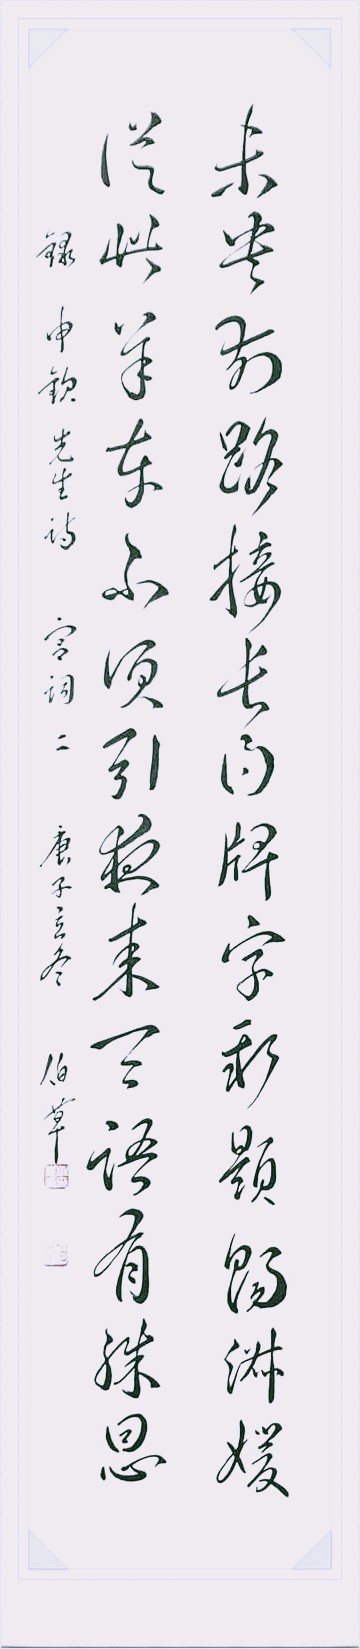 未央前路接長門牌字新題賜淑媛
從此羊車不須引夜來天語有殊恩
錄 申欽先生詩 宮詞 二 庚子立冬 伯草